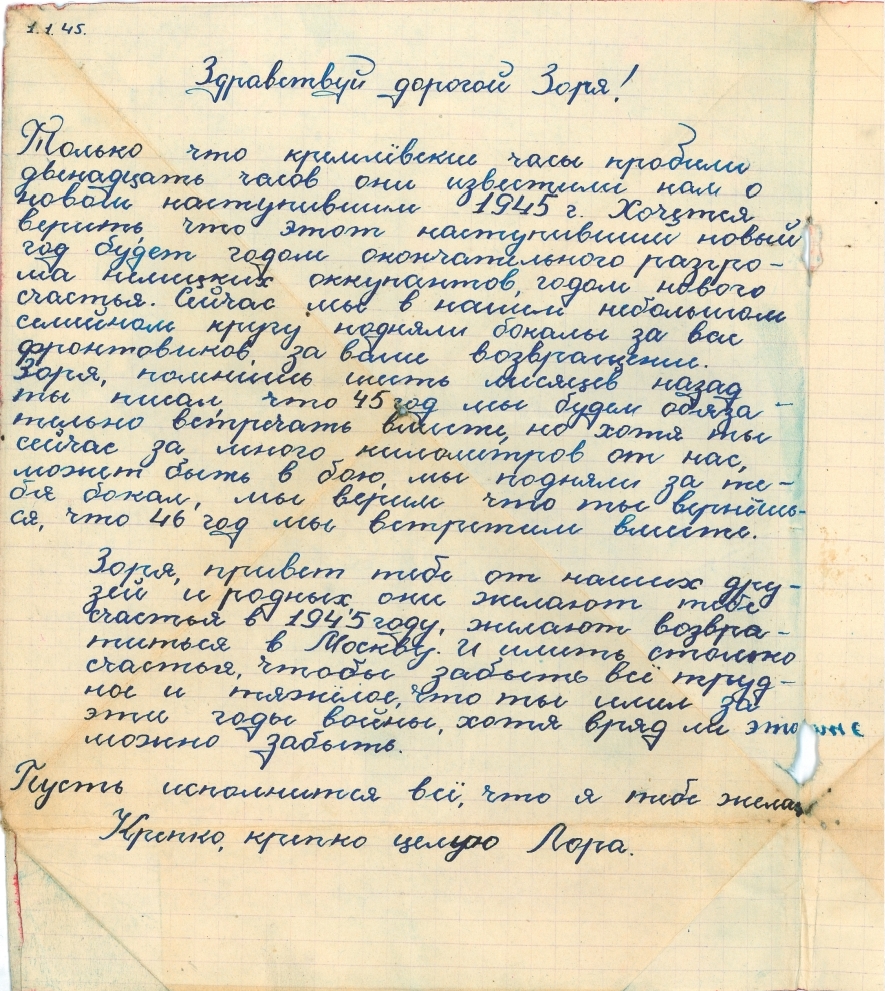 1.1.45.
Здравствуй дорогой Зоря!
Только что кремлёвские часы пробили
двенадцать часов они известили нам о
новом наступившим 1945 г. Хочется
верить, что этот наступивший новый
год будет годом окончательного разгро-
ма немецких оккупантов, годом нового
счастья. Сейчас мы в нашем небольшом
семейном кругу подняли бокалы за вас
фронтовиков, за ваше возвращение.
Зоря, помнишь шесть месяцев назад
ты писал что 45 год мы будем обяза-
тельно встречать вместе, но хотя ты
сейчас за много километров от нас,
может быть в бою, мы подняли за те-
бя бокал, мы верим что ты вернёшь-
ся, что 46 год мы встретим вместе.
Зоря, привет тебе от наших дру-
зей и родных, они желают тебе
счастья в 1945 году, желают возвра-
титься в Москву. И иметь столько
счастья, чтобы забыть всё труд-
ное и тяжёлое, что ты имел за
эти годы войны, хотя вряд ли это
можно забыть.
Пусть исполнится всё, что я тебе
Крепко, крепко целую Лора.